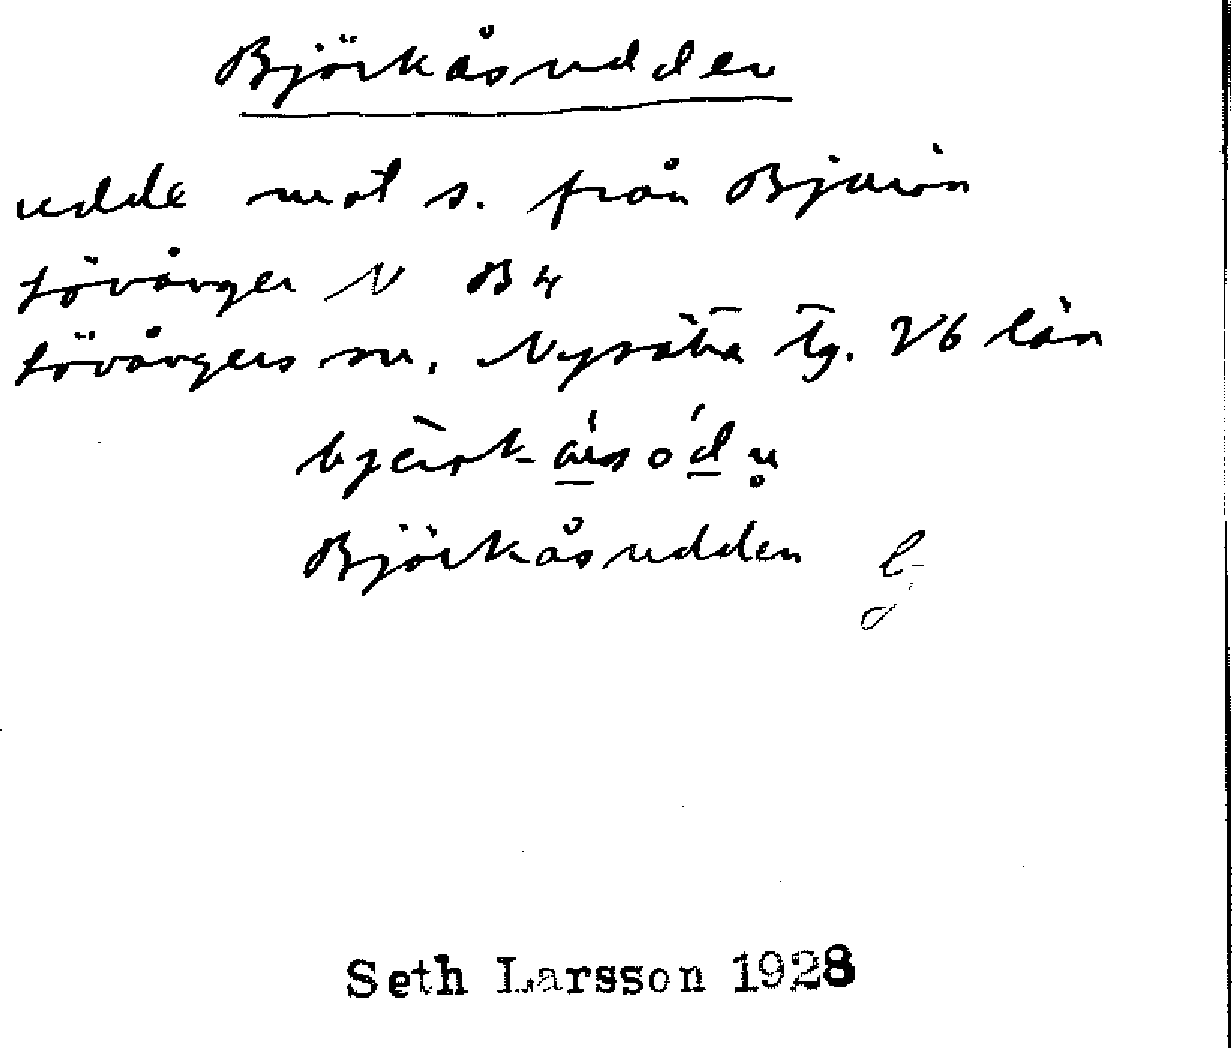 Björkåsudden
udde mot s. från Bjurön
Lövånger N B 4
Lövångers sn, Nysätra tg. Vb län
Björkåsudden
Seth Larsson 1928